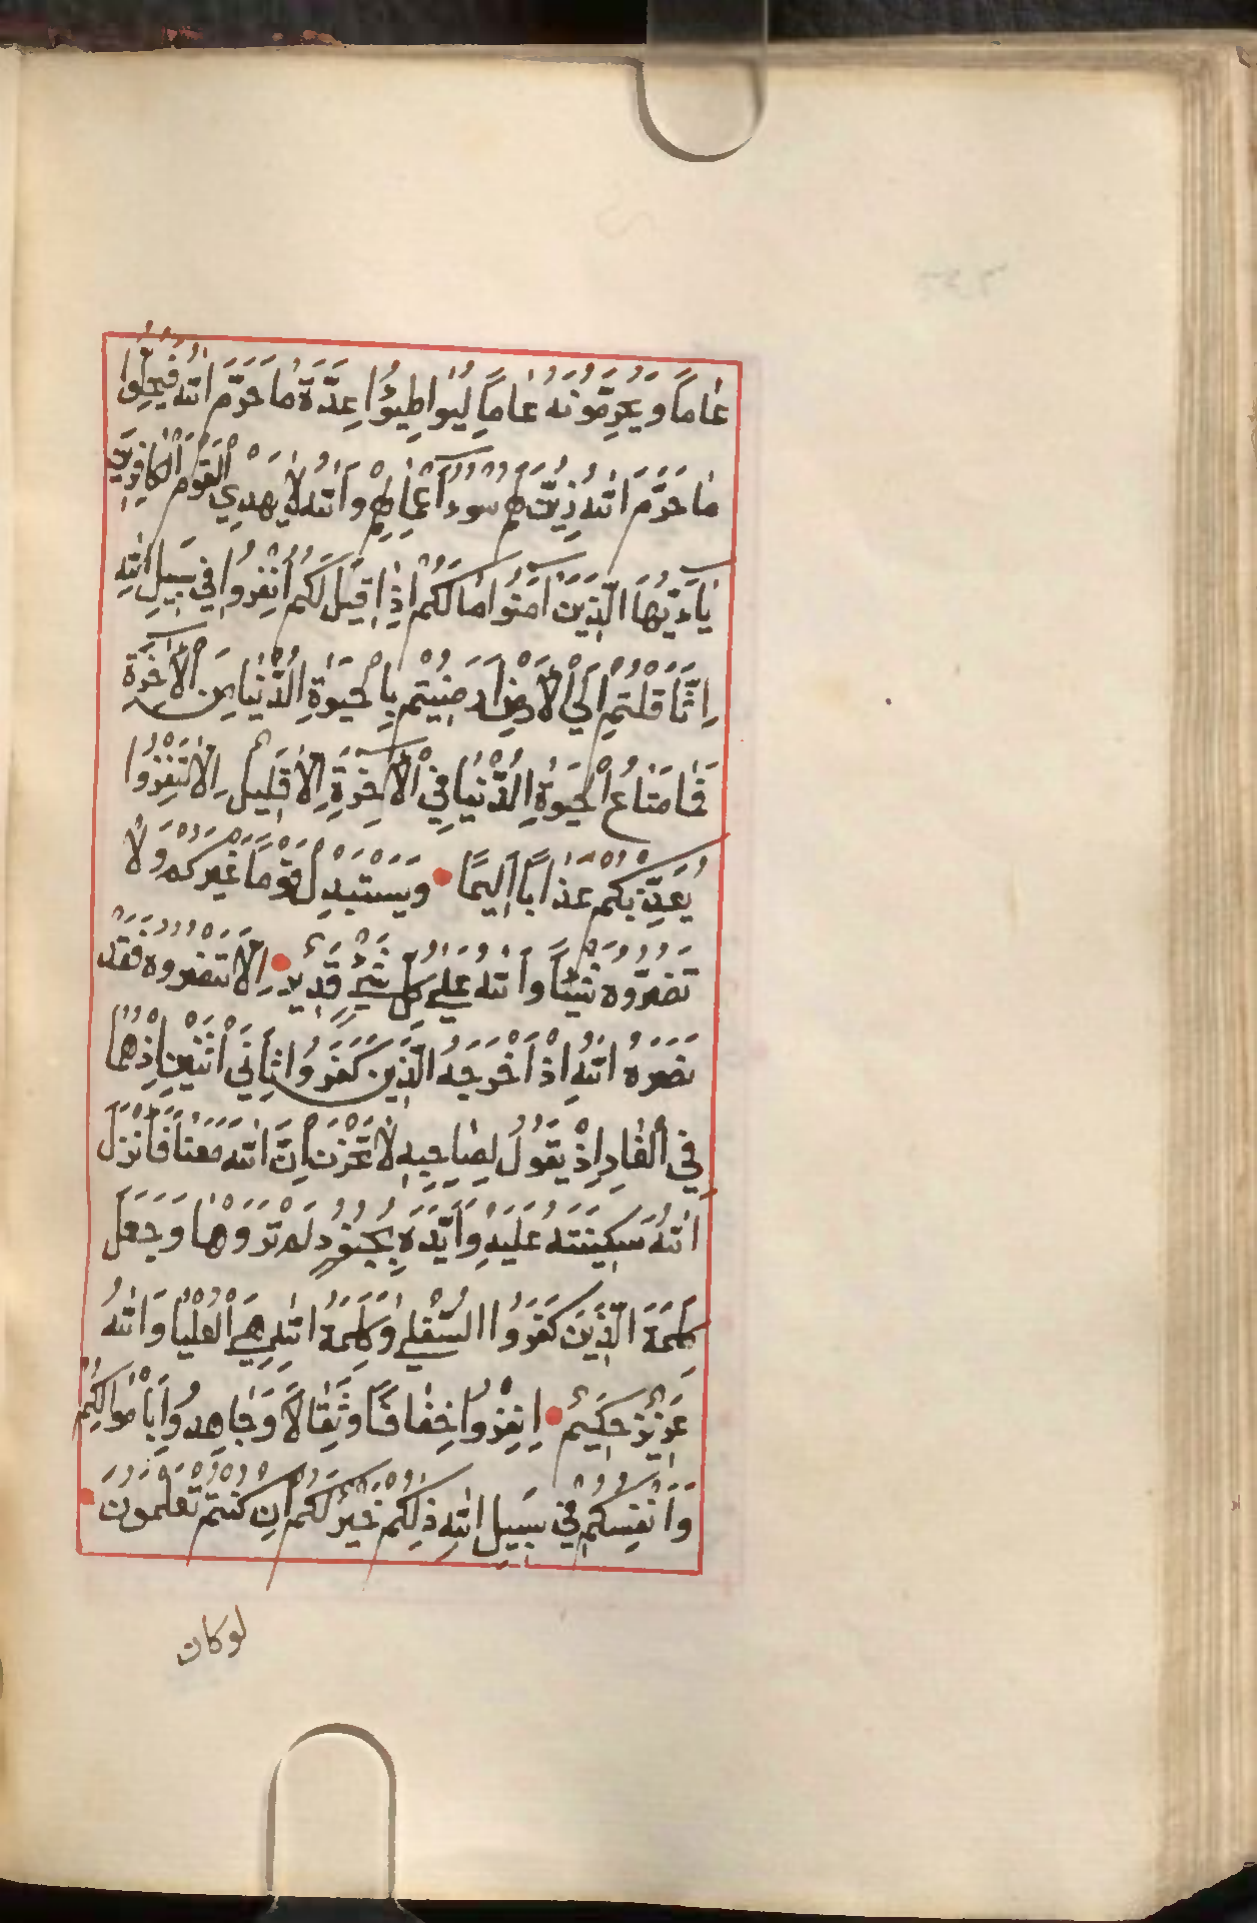 عَامًا وَيُحَرِّمُونَهُ عَامًا لِيُوَاطِئُوا عِدَّةَ مَا حَرَّمَ اللّٰهُ فَيُحِلُّوا
مَا حَرَّمَ اللّٰهُ زُيِّنَ لَهُمْ سُوٓءُ أَعْمَالِهِمْ وَاللّٰهُ لَا يَهْدِي الْقَوْمَ الْكَافِرِينَ
يَآءَيُّهَا الَّذِينَ آمَنُوا مَا لَكُمْ إِذَا قِيلَ لَكُمُ انْفِرُوا فِي سَبِيلِ اللّٰهِ
اِثَّاقَلْتُمْ إِلَى الْأَرْضِ أَرَضِيتُمْ بِالْحَيٰوةِ الدُّنْيَا مِنَ الْآخِرَةِ
فَمَا مَتَاعُ الْحَيٰوةِ الدُّنْيَا فِي الْآخِرَةِ إِلَّا قَلِيلٌ إِلَّا تَنْفِرُوا
يُعَذِّبْكُمْ عَذَابًا أَلِيمًا وَيَسْتَبْدِلْ قَوْمًا غَيْرَكُمْ وَلَا
تَضُرُّوهُ شَيْئًا وَاللّٰهُ عَلَى كُلِّ شَيْءٍ قَدِيرٌ إِلَّا تَنْصُرُوهُ فَقَدْ
نَصَرَهُ اللّٰهُ إِذْ أَخْرَجَهُ الَّذِينَ كَفَرُوا ثَانِيَ اثْنَيْنِ إِذْ هُمَا
فِي الْغَارِ إِذْ يَقُولُ لِصَاحِبِهِ لَا تَحْزَنْ إِنَّ اللّٰهَ مَعَنَا فَأَنْزَلَ
اللّٰهُ سَكِينَتَهُ عَلَيْهِ وَأَيَّدَهُ بِجُنُودٍ لَمْ تَرَوْهَا وَجَعَلَ
كَلِمَةَ الَّذِينَ كَفَرُوا السُّفْلَى وَكَلِمَةُ اللّٰهِ هِيَ الْعُلْيَا وَاللّٰهُ
عَزِيزٌ حَكِيمٌ اِنْفِرُوا خِفَافًا وَثِقَالًا وَجَاهِدُوا بِأَمْوَالِكُمْ
وَأَنْفُسِكُمْ فِي سَبِيلِ اللّٰهِ ذٰلِكُمْ خَيْرٌ لَكُمْ إِنْ كُنْتُمْ تَعْلَمُونَ
لوكان